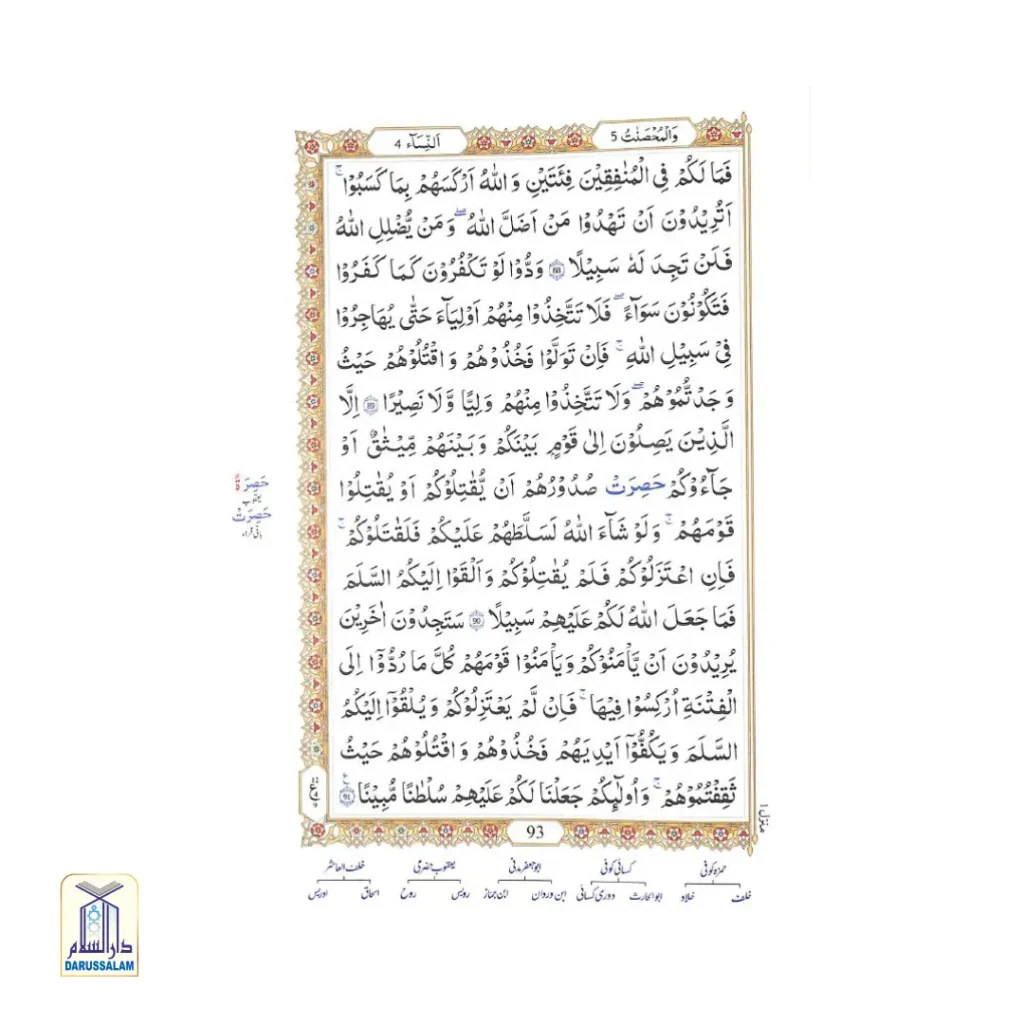 وَالْمُحْصَنٰتُ 5
اَلنِّسَآء 4
فَمَا لَكُمْ فِى الْمُنٰفِقِيْنَ فِئَتَيْنِ وَ اللّٰهُ اَرْكَسَهُمْ بِمَا كَسَبُوْا ۚ
اَتُرِيْدُوْنَ اَنْ تَهْدُوْا مَنْ اَضَلَّ اللّٰهُ ۖ وَ مَنْ يُّضْلِلِ اللّٰهُ
فَلَنْ تَجِدَ لَهٗ سَبِيْلًا 88 وَدُّوْا لَوْ تَكْفُرُوْنَ كَمَا كَفَرُوْا
فَتَكُوْنُوْنَ سَوَآءً ۖ فَلَا تَتَّخِذُوْا مِنْهُمْ اَوْلِيَآءَ حَتّٰى يُهَاجِرُوْا
فِىْ سَبِيْلِ اللّٰهِ ۚ فَاِنْ تَوَلَّوْا فَخُذُوْهُمْ وَ اقْتُلُوْهُمْ حَيْثُ
وَجَدْتُّمُوْهُمْ ۖ وَلَا تَتَّخِذُوْا مِنْهُمْ وَلِيًّا وَّ لَا نَصِيْرًا 89 اِلَّا
الَّذِيْنَ يَصِلُوْنَ اِلٰى قَوْمٍۭ بَيْنَكُمْ وَ بَيْنَهُمْ مِّيْثٰقٌ اَوْ
جَآءُوْكُمْ حَصِرَتْ صُدُوْرُهُمْ اَنْ يُّقٰتِلُوْكُمْ اَوْ يُقٰتِلُوْا
قَوْمَهُمْ ۚ وَلَوْ شَآءَ اللّٰهُ لَسَلَّطَهُمْ عَلَيْكُمْ فَلَقٰتَلُوْكُمْ ۚ
فَاِنِ اعْتَزَلُوْكُمْ فَلَمْ يُقٰتِلُوْكُمْ وَ اَلْقَوْا اِلَيْكُمُ السَّلَمَ
فَمَا جَعَلَ اللّٰهُ لَكُمْ عَلَيْهِمْ سَبِيْلًا 90 سَتَجِدُوْنَ اٰخَرِيْنَ
يُرِيْدُوْنَ اَنْ يَّاْمَنُوْكُمْ وَ يَاْمَنُوْا قَوْمَهُمْ كُلَّ مَا رُدُّوْٓا اِلَى
الْفِتْنَةِ اُرْكِسُوْا فِيْهَا ۚ فَاِنْ لَّمْ يَعْتَزِلُوْكُمْ وَ يُلْقُوْٓا اِلَيْكُمُ
السَّلَمَ وَ يَكُفُّوْٓا اَيْدِيَهُمْ فَخُذُوْهُمْ وَ اقْتُلُوْهُمْ حَيْثُ
ثَقِفْتُمُوْهُمْ ۚ وَ اُولٰٓئِكُمْ جَعَلْنَا لَكُمْ عَلَيْهِمْ سُلْطٰنًا مُّبِيْنًا 91
حَصِرَةً
یعقوب
حَصِرَتْ
باقی قراء
منزل ١
93
حمزہ کوفی کسائی کوفی ابو جعفر مدنی یعقوب حضری خلف العاشر
خلف خلاد ابو الحارث دوری کسائی ابن وردان ابن جماز رویس روح اسحاق ادریس
دار السلام
DARUSSALAM